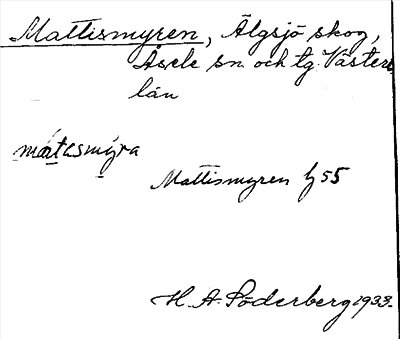 Mattismyren, Älgsjö skog,
Åsele sn. och tg. Västerb.
län
mátesmýra
Mattismyren h 55
H. A. Söderberg 1933.